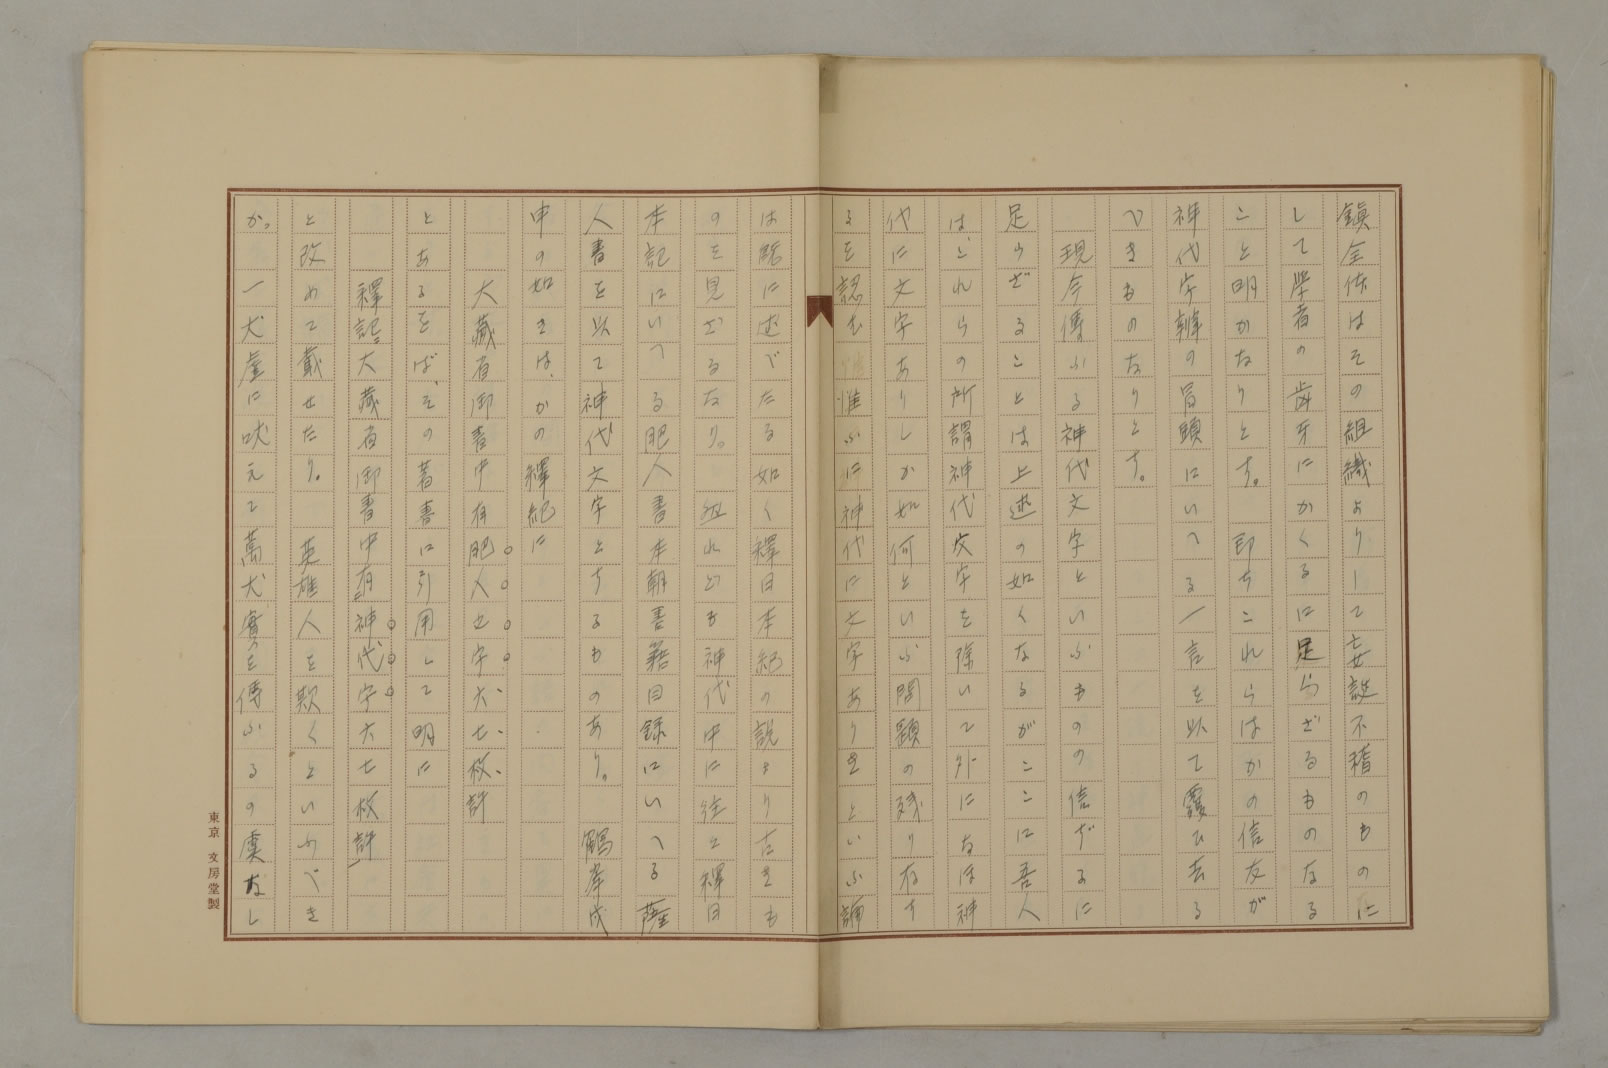 鎭全体はその組織よりして妄誕不稽のものに
して學者の歯牙にかくるに足らざるものなる
こと明かなりとす。　即ちこれらはかの信友が
神代字辨の冒頭にいへる一言を以て覆ひ去る
べきものなりとす。
現今傳ふる神代文字といふものの信ずるに
足らざることは上述の如くなるがこゝに吾人
は、これらの所謂神代文字を除いて外になほ神
代に文字ありしか如何といふ問題の残り存す
るを認む　惟ふに神代に文字ありきといふ論
は既に述べたる如く釋日本紀の説より古きも
のを見ざるなり。然れども神代中に往々釋日
本記にいへる肥人書本朝書籍目録にいへる薩
人書を以て神代文字とするものあり。　鶴峯戊
申の如きは、かの釋紀に
大藏省御書中有肥人之字六、七、枚、許
とあるをば、その著書に引用して明に
釋記ニ大藏省御書中有ニ神代字六七枚許
と改めて載せたり。　英雄人を欺くといふべき
か。一犬虚に吠えて萬犬實を傳ふるの虞なし
東京　文房堂製